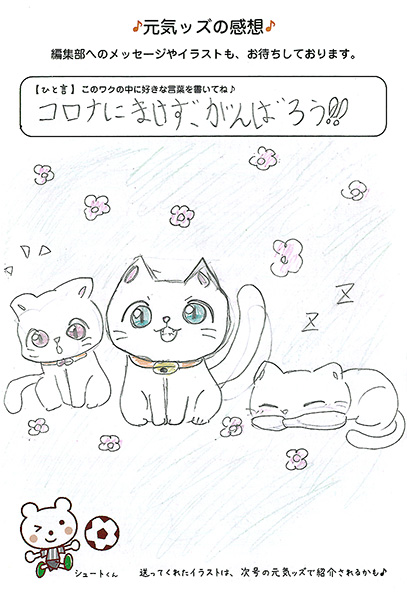 ♪元気ッズの感想♪
編集部へのメッセージやイラストも、お待ちしております。
【ひと言】このワクの中に好きな言葉を書いてね♪
コロナにまけずがんばろう!!
Z
Z
シュートくん
送ってくれたイラストは、次号の元気ッズで紹介されるかも♪